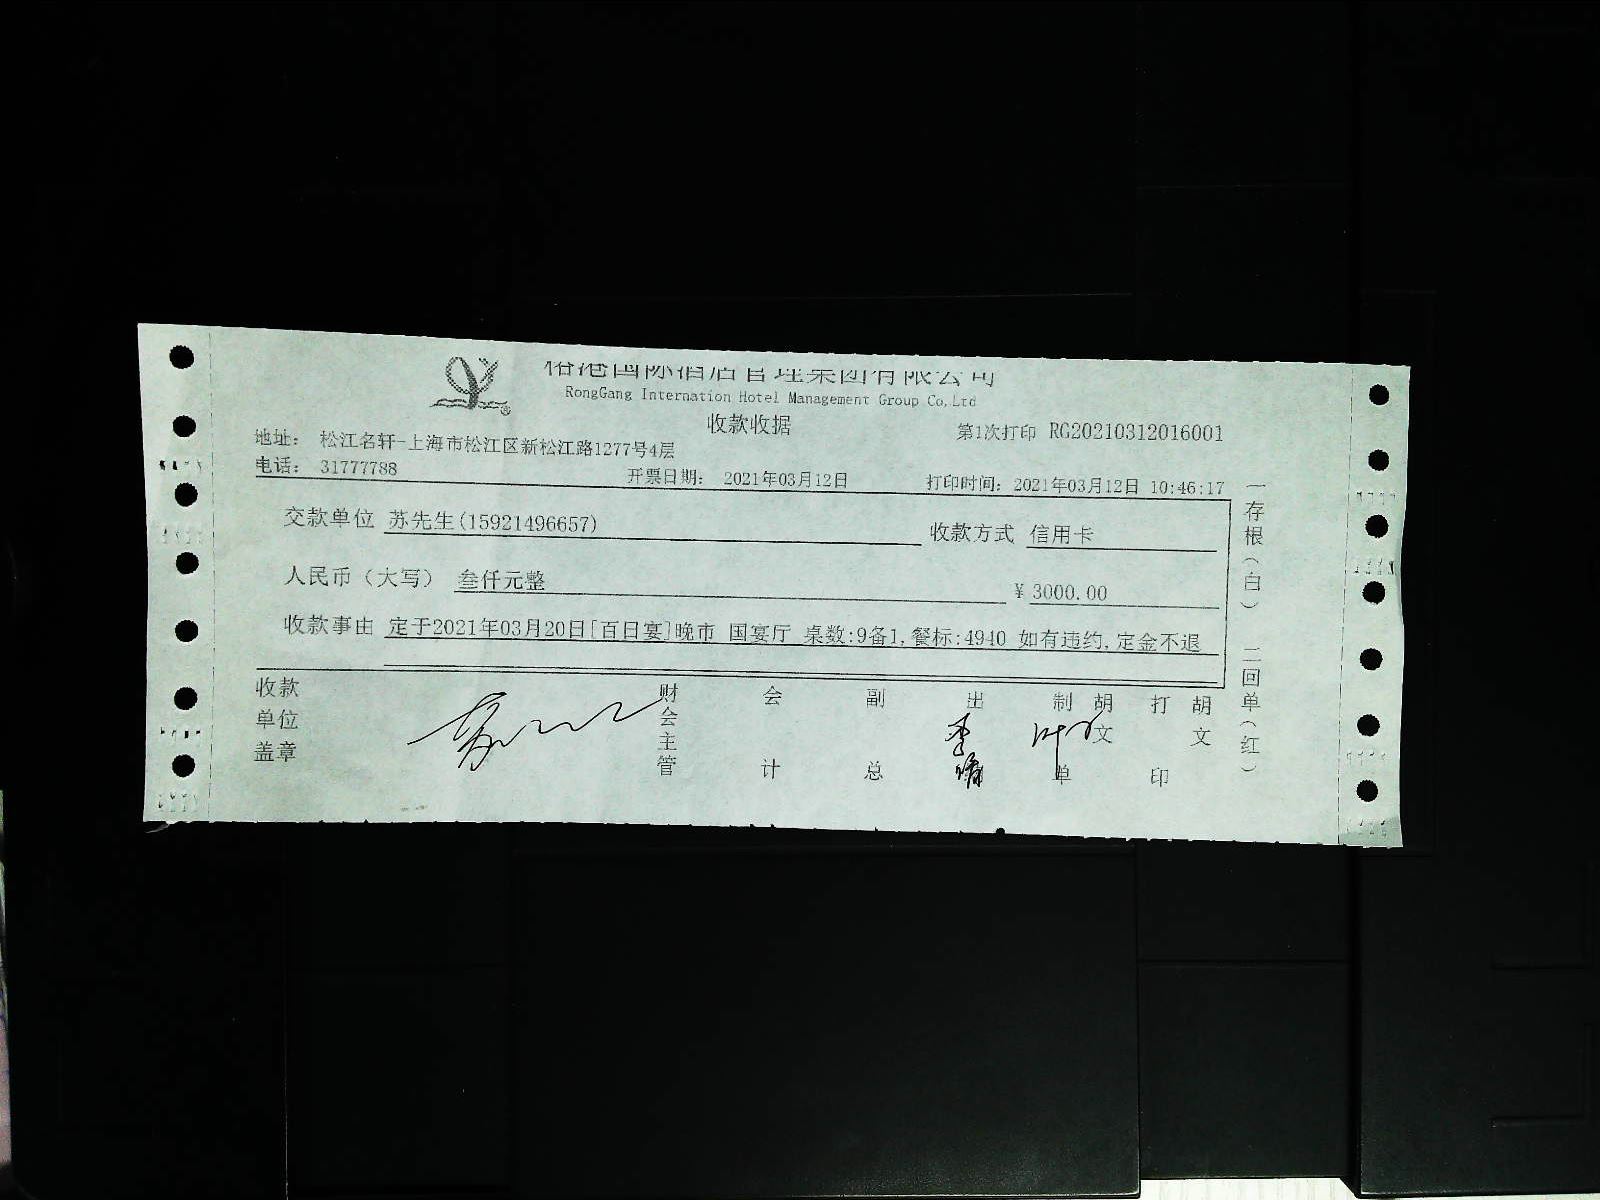 港国际酒店管理集团有限公司
RongGang Internation Hotel Management Group Co,Ltd
收款收据
第1次打印 RG20210312016001
地址: 松江名轩-上海市松江区新松江路1277号4层
电话: 31777788 开票日期: 2021年03月12日 打印时间: 2021年03月12日 10:46:17
交款单位 苏先生(15921496657) 收款方式 信用卡
人民币(大写) 叁仟元整 ¥3000.00
收款事由 定于2021年03月20日[百日宴]晚市 国宴厅 桌数:9备1,餐标:4940 如有违约,定金不退
收款单位盖章
财会主管
会计
副总
出
李
制单
胡文
打印
胡文
一存根(白) 二回单(红)